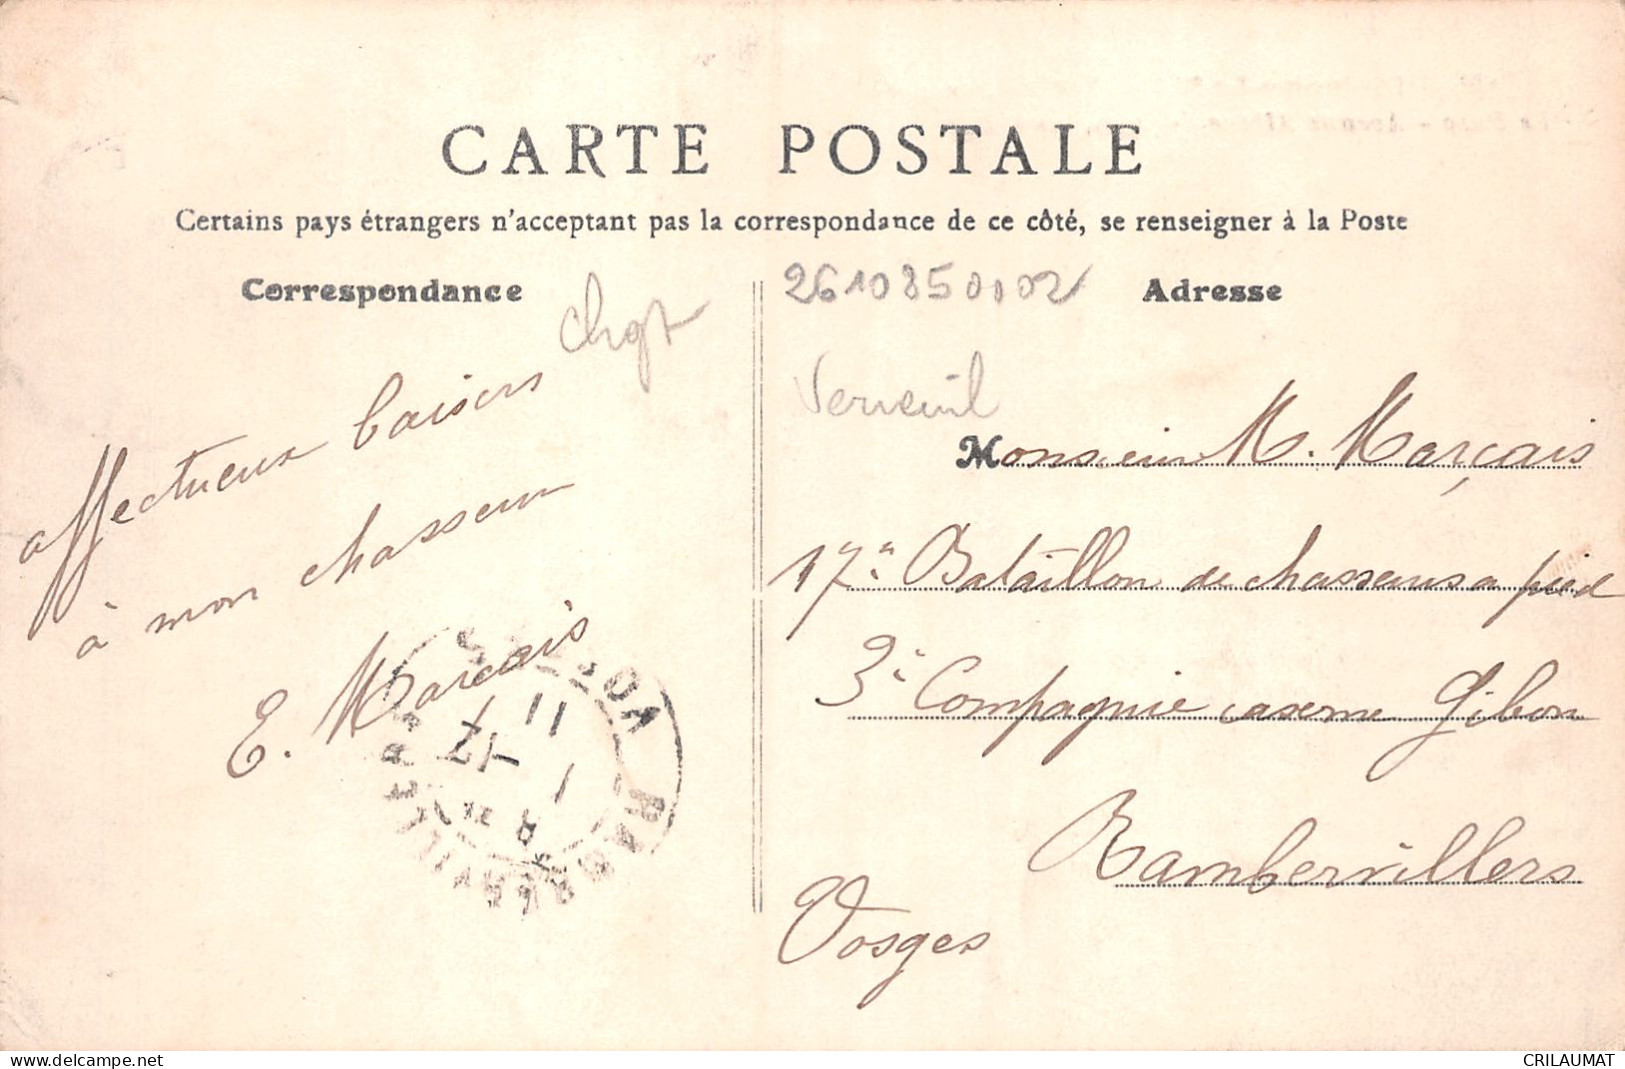 CARTE POSTALE
Certains pays étrangers n'acceptant pas la correspondance de ce côté, se renseigner à la Poste
Correspondance
Chgt
affectueux baisers
à mon chasseur
E. Marcais
Adresse
2610850002
Verneuil
Monsieur M. Marçais
17e Bataillon de chasseurs a pied
3e Compagnie caserne Gibon
Rambervillers
Vosges
RAMBERVILLERS
delcampe.net
CRILAUMAT